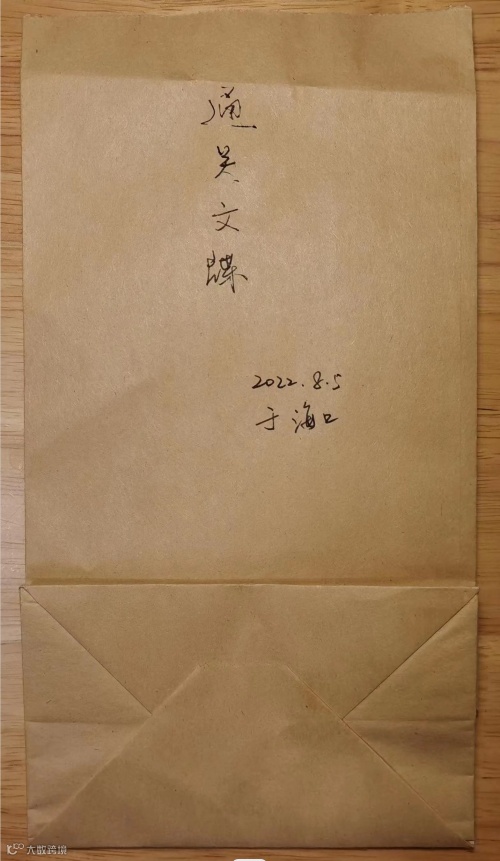 通
关
文
牒
2022.8.5
于海口
大数跨境